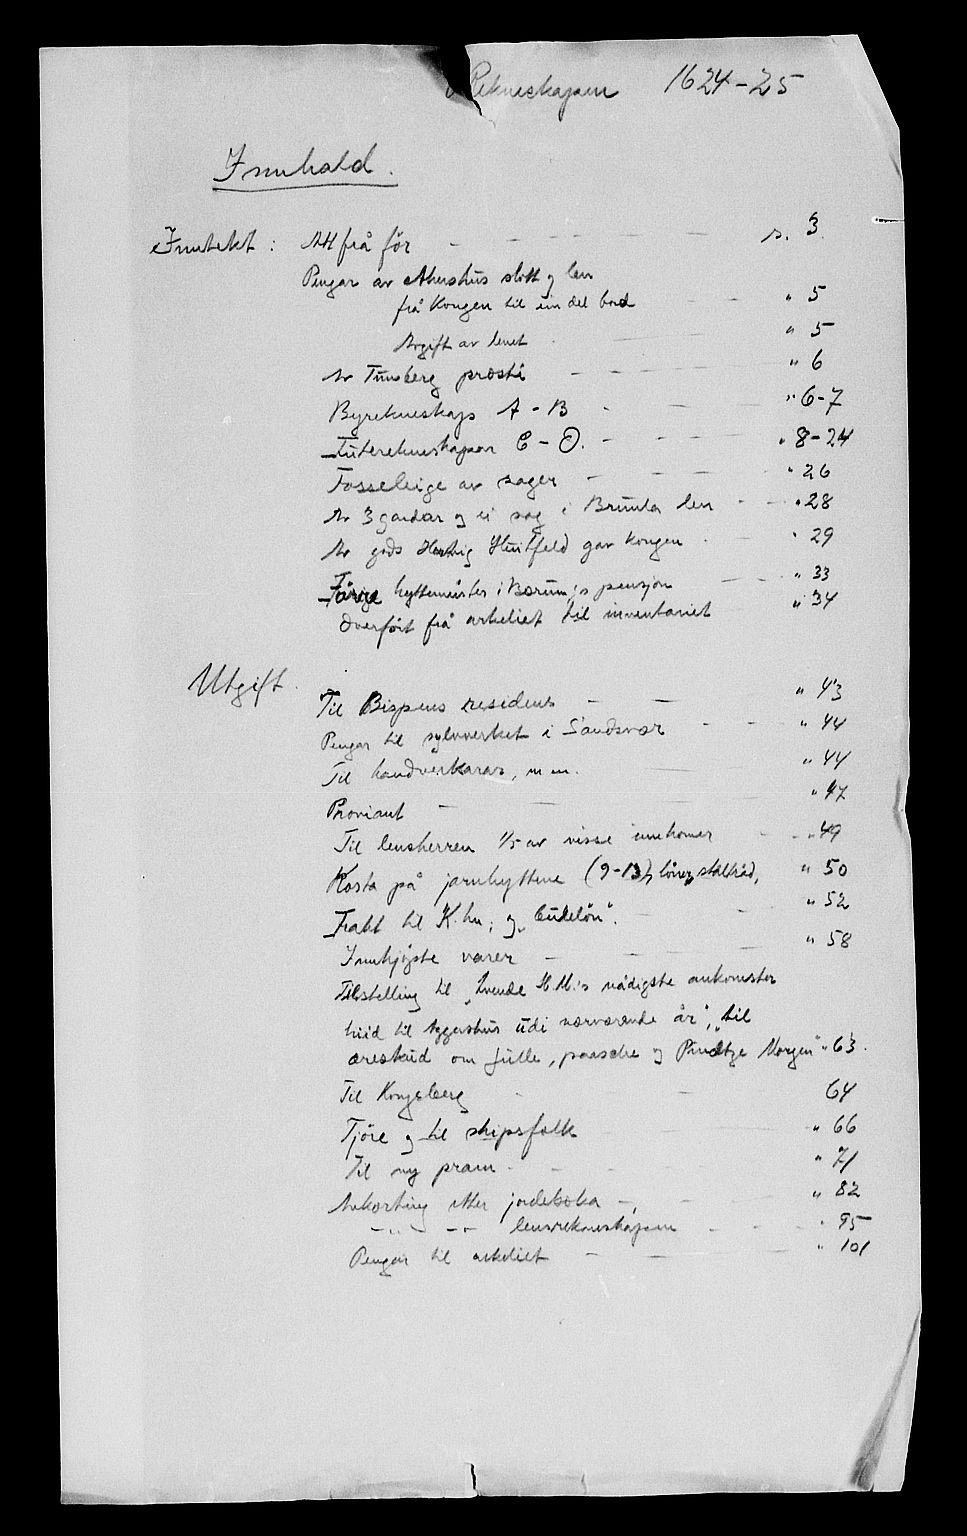 Rekneskapen 1624-25
Innhald.
Inntekt: Att frå för s. 3
Pengar av Akershus slott og len
frå Kongen til ein del bord " 5
Avgift av lenet " 5
Av Tunsberg prosti " 6
Byrekneskap A - B " 6-7
Futerekneskapar C - O. " 8-24
Fosseleige av sager " 26
Av 3 gardar og ei sag i Brunla len " 28
Av gods Hartvig Huitfeld gav kongen " 29
Förige hyttemeister i Bærum's pensjon " 33
Overfört frå arkeliet til inventariet " 34
Utgift.
Til Bispens residens " 43
Pengar til sylvverket i Sandsvær " 44
Til handverkarar, m.m. " 44
Proviant " 47
Til lensherren 1/5 av visse innkomer " 49
Kosta på jarnhyttene (9-13), löner, ståltråd, " 50
Frakt til K.hn; og " " 52
Innkjöpte varer " 58
Tilstelling til "hvende K.M.'s nådigste ankomster
hiid til Aggershus udi nærværende år", til
æreskud om Julle, paasche og Pindtze Morgen" " 63.
Til Kongsberg 64
Tjöre og til skipsfolk " 66
Til ny pram " 71
Avkorting etter jordeboka " 82
-"- -"- lensrekneskapen " 95
Pengar til arkeliet " 101